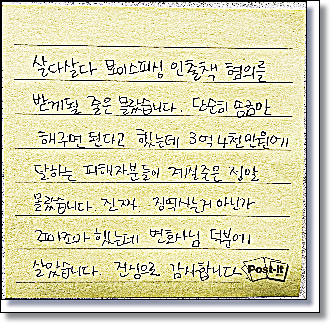 살다살다 보이스피싱 인출책 혐의를
받게될 줄은 몰랐습니다. 단순히 송금만
해주면 된다고 했는데 3억 4천만원에
달하는 피해자분들이 계실줄은 정말
몰랐습니다. 진짜.. 징역사는거 아닌가
조마조마 했는데 변호사님 덕분에
살았습니다. 진심으로 감사합니다
Post-it